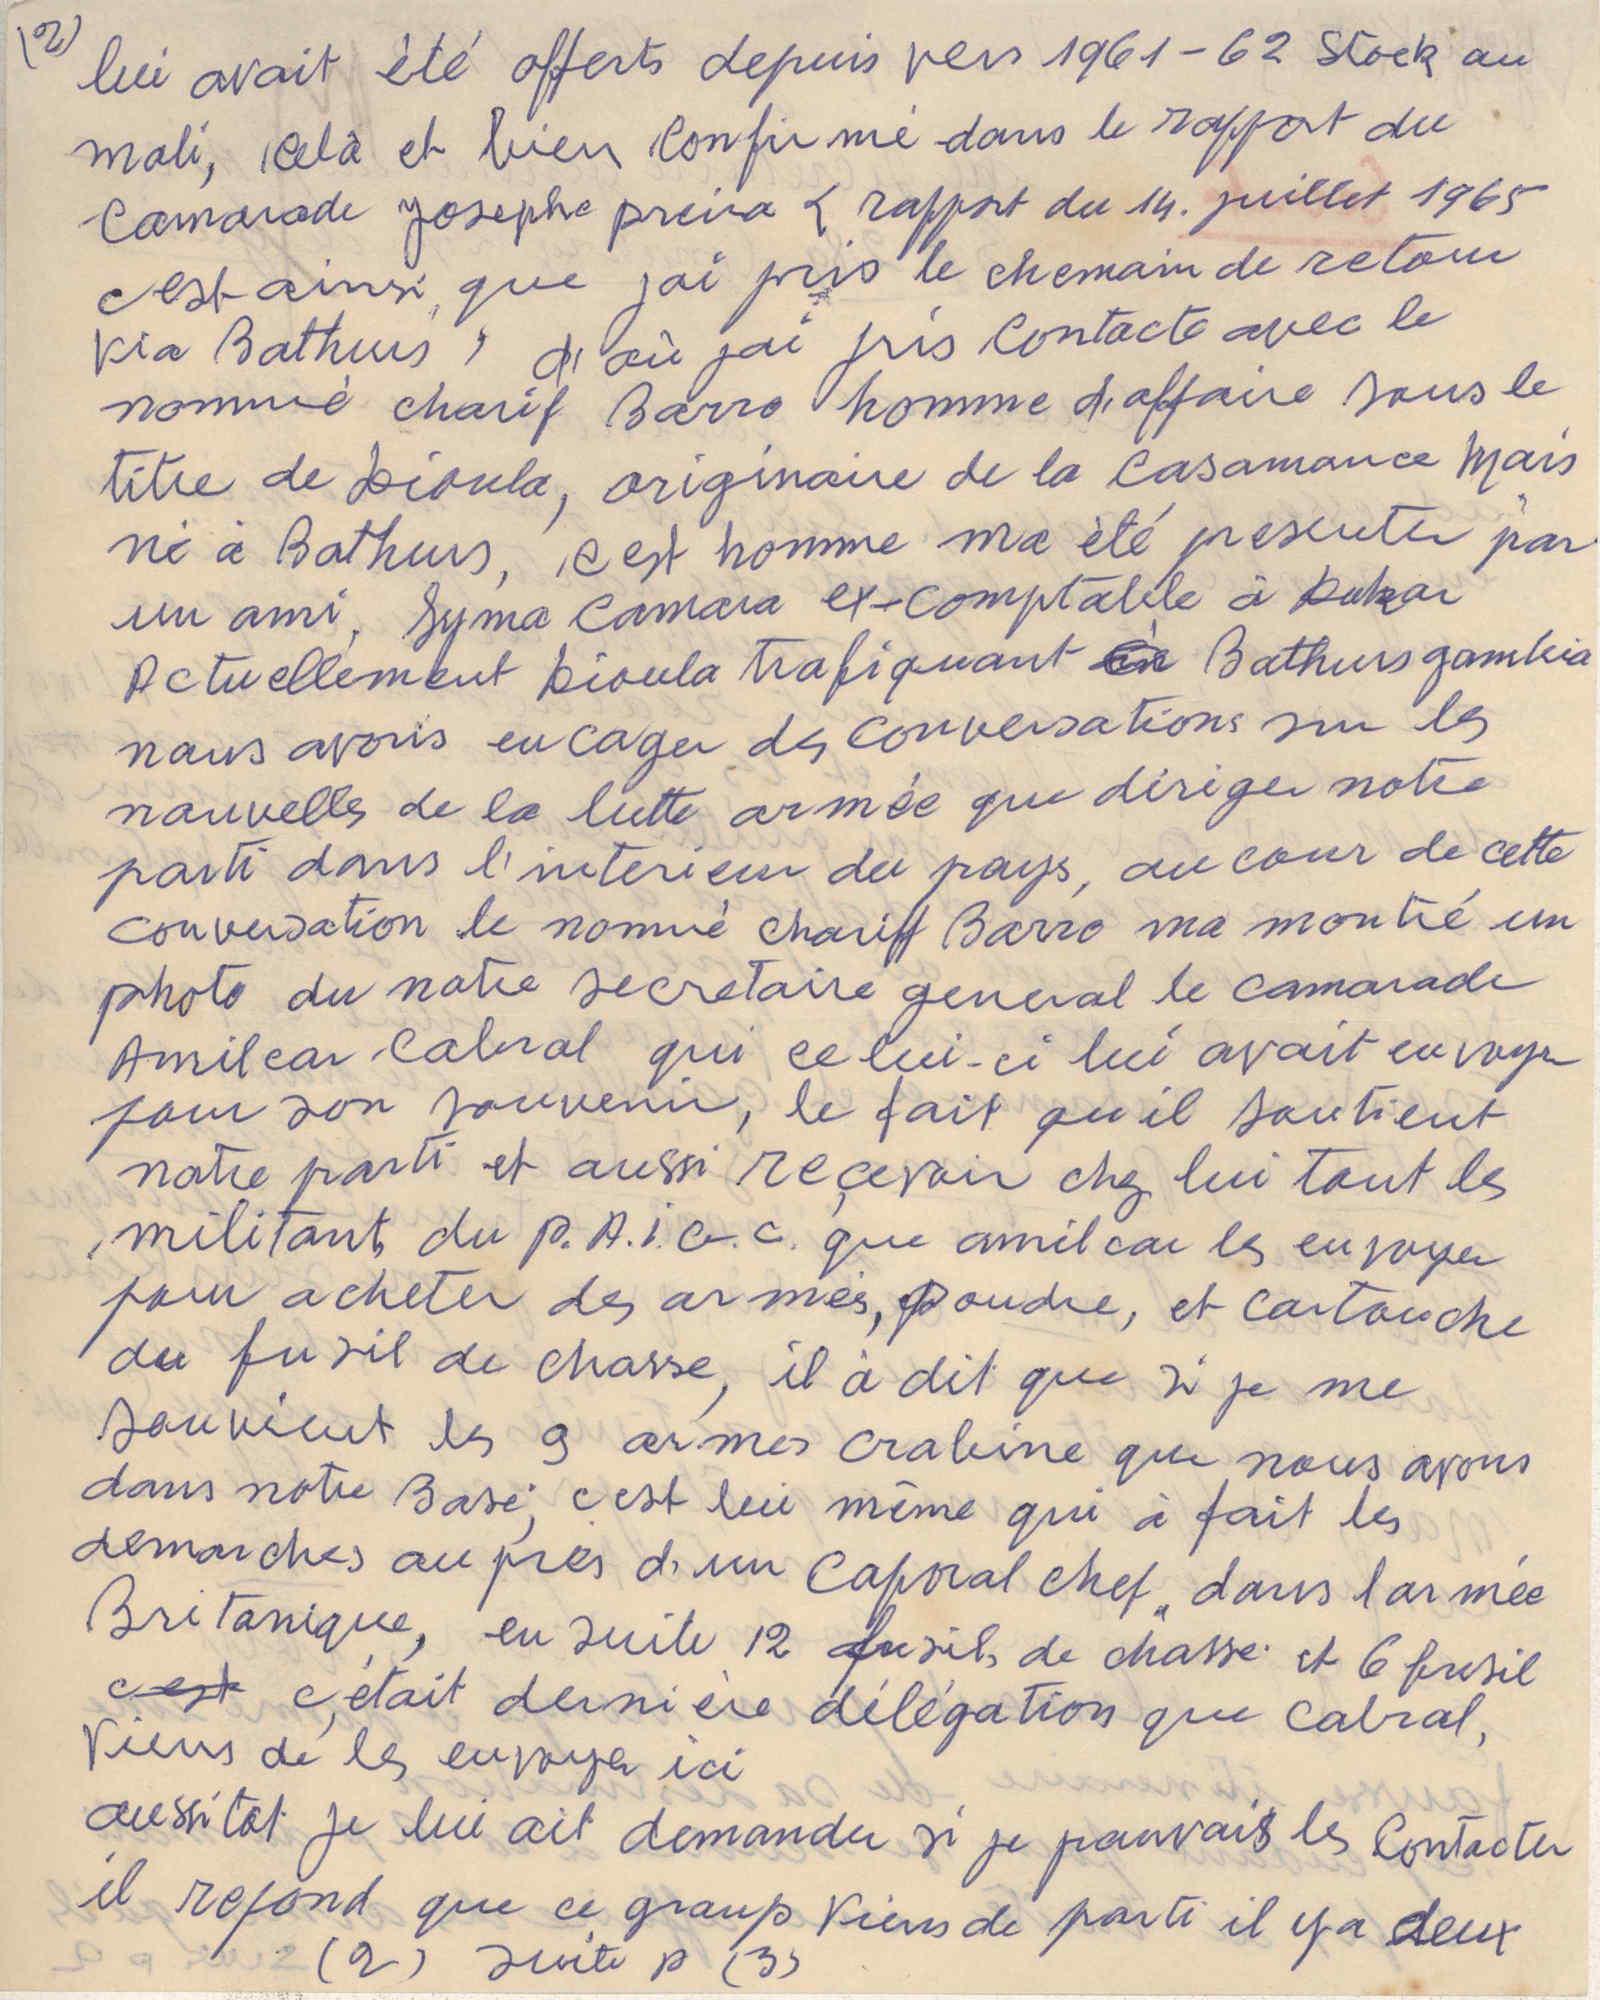 (2)
lui avait été offerts depuis vers 1961-62 Stock au
mali, celà et bien confirmé dans le rapport du
Camarade Josephe preira { rapport du 14. juillet 1965
c'est ainsi que jai pris le chemain de retour
via Bathurs, d'où jai pris Contacte avec le
nommé charif Barro homme d'affaire sous le
titre de Dioula, originaire de la Casamance Mais
né à Bathurs, cest homme ma été presenter par
un ami, Syma Camara ex-comptable à Dakar
Actuellement Dioula trafiquant Bathurs gambia
nous avons encager des conversations sur les
nouvelles de la lutte armée que diriger notre
parti dans l'interieur du pays, au cour de cette
conversation le nommé chariff Barro ma montré un
photo du notre secretaire general le camarade
Amilcar Cabral qui celui-ci lui avait envoyer
pour son souvenir, le fait qu'il soutient
notre parti et aussi reçevoir chez lui tout les
militants du P.A.i.G.C. que amilcar les envoyer
pour acheter des armes, poudre, et cartouche
du fusil de chasse, il à dit que si je me
souvient les 9 armes crabine que nous avons
dans notre Base, c'est lui même qui à fait les
demarches au près d'un Caporal chef dans l'armée
Britanique, en suite 12 fusils de chasse et 6 fusil
c'est c'était dernière délégation que Cabral,
viens de les envoyer ici
aussitot je lui ait demander si je pouvais les Contacter
il repond que ce group viens de parti il y a deux
(2) suite p (3)